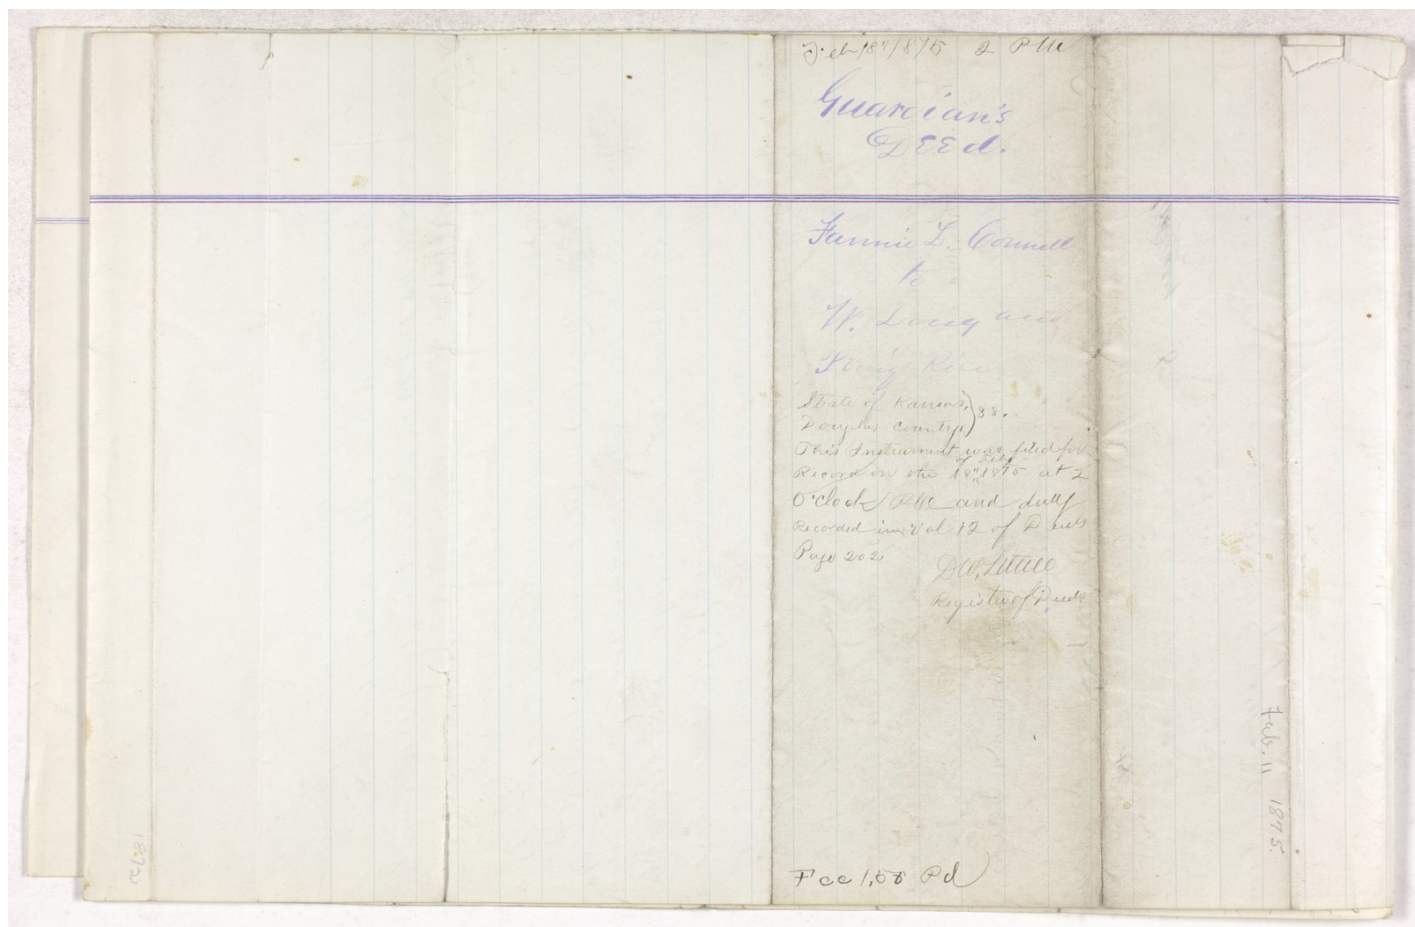 Feb 18" 1875 2 PM
Guardian's
DEEd.
Fannie L. Connell
to
W. Long and
State of Kansas,) ss.
Douglas County,)
This Instrument was filed for
of Feby
Record on the 18" 1875 at 2
O'Clock PM and duly
Recorded in Vol 12 of Deeds
Page 202
Register of Deeds
Fee 1,50 Pd
Feb. 11 1875.